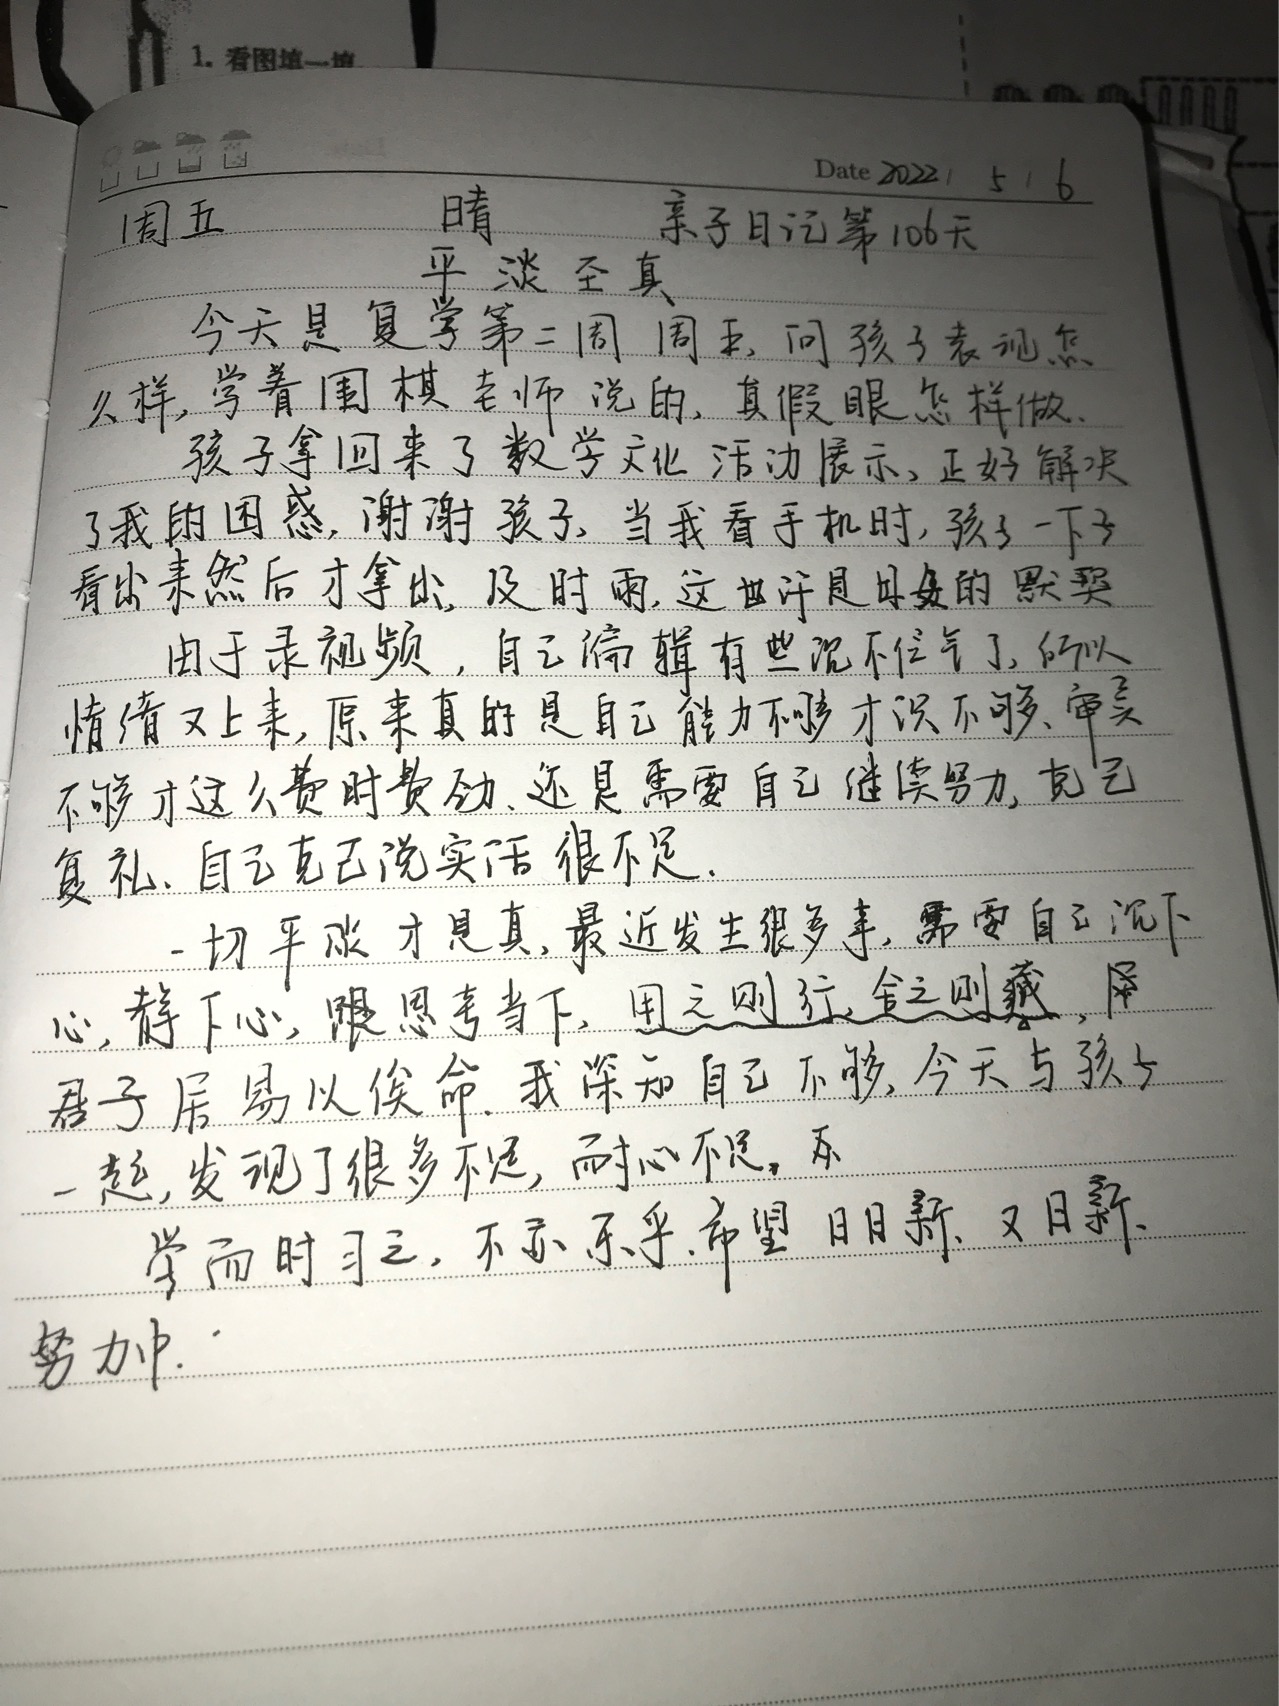 1. 看图填一填
Date 2022 / 5 / 6
周五 晴 亲子日记第106天
平淡至真
今天是复学第二周周五,问孩子表现怎
么样,学着围棋老师说的,真假眼怎样做.
孩子拿回来了数学文化活动展示、正好解决
了我的困惑,谢谢孩子、当我看手机时,孩子一下子
看出来然后才拿出,及时雨,这也许是母女的默契
由于录视频,自己编辑有些沉不住气了、所以
情绪又上来,原来真的是自己能力不够才识不够、审美
不够才这么费时费劲、还是需要自己继续努力,克己
复礼、自己克己说实话很不足.
一切平淡才是真,最近发生很多事,需要自己沉下
心,静下心,思考当下,用之则行,舍之则藏,
君子居易以俟命.我深知自己不够,今天与孩子
一起,发现了很多不足,耐心不足。
学而时习之,不亦乐乎.希望日日新、又日新、
努力中.